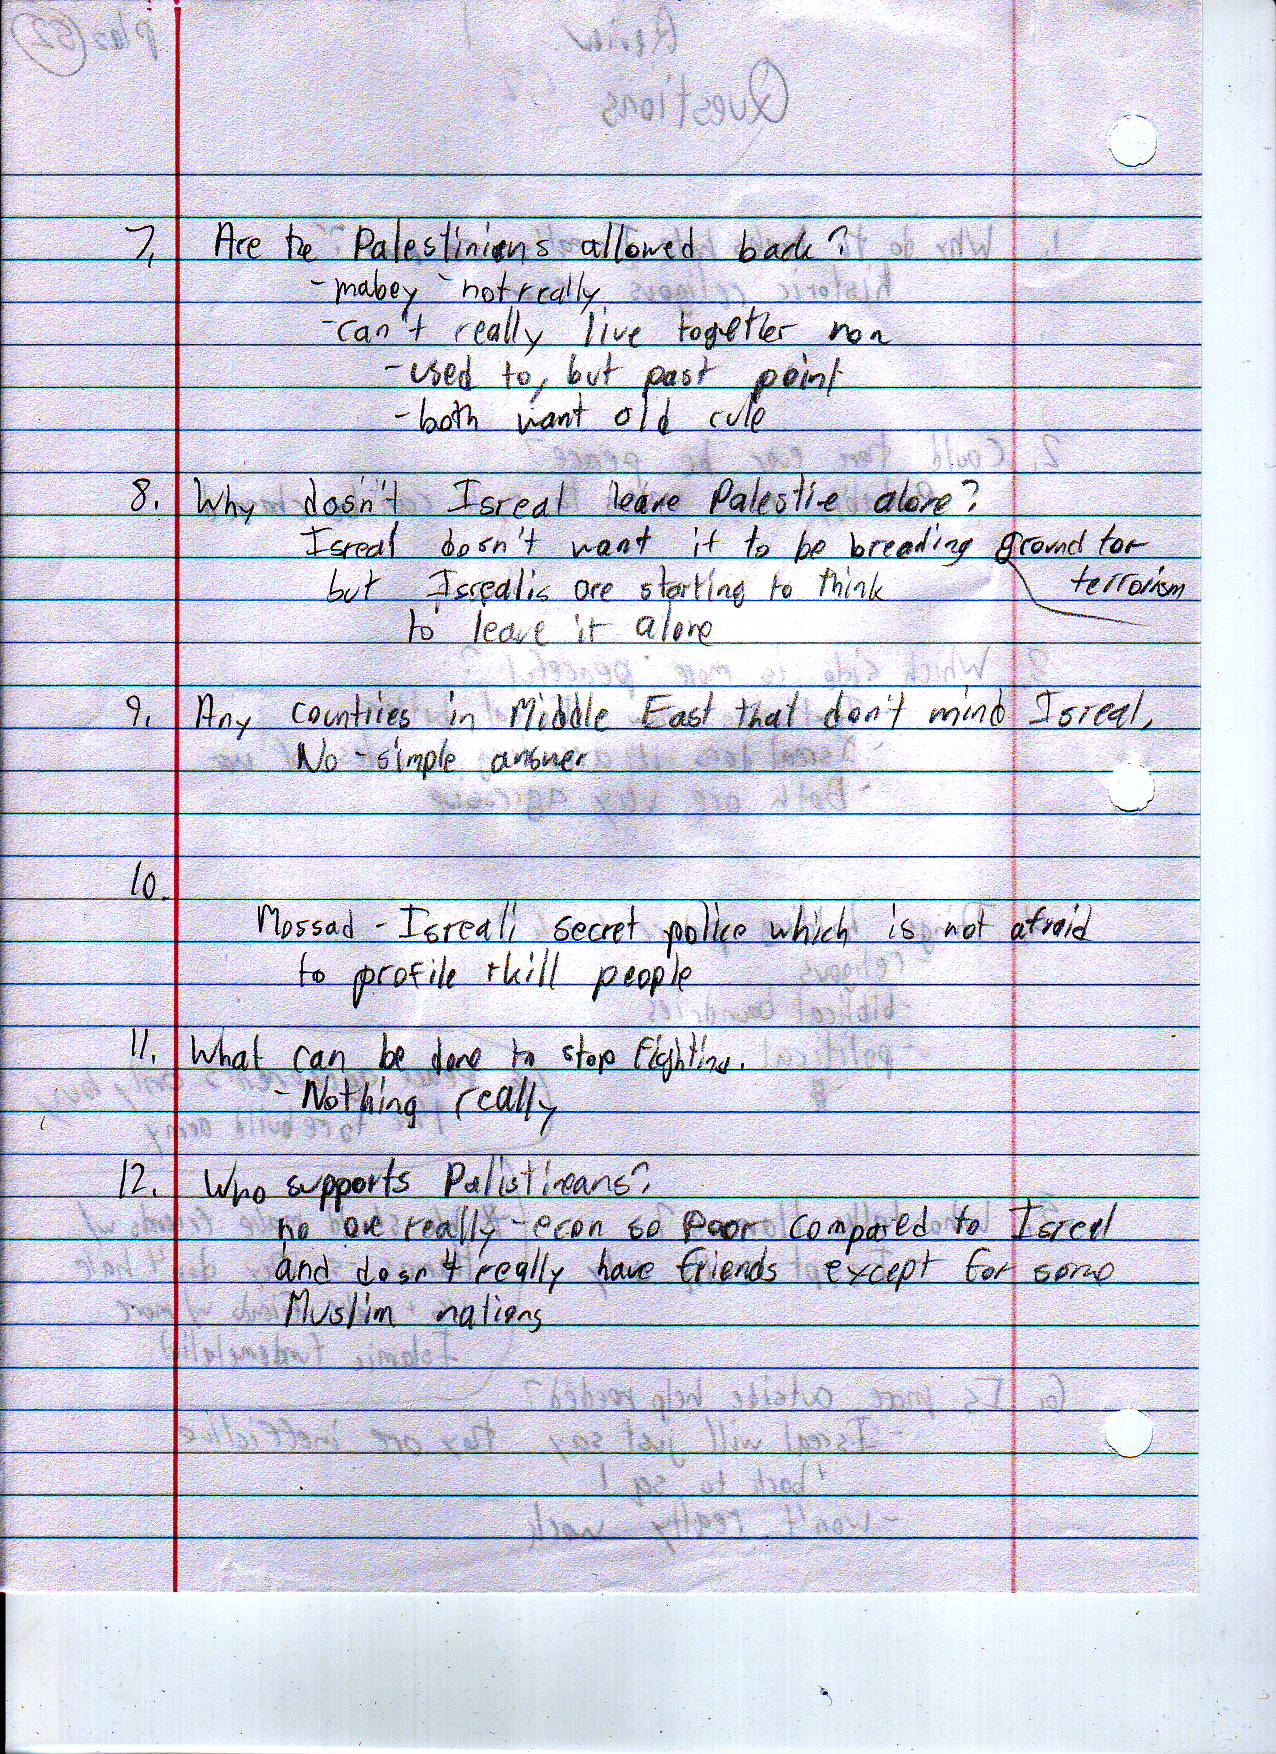 7. Are the Palestinians allowed back?
- mabey - not really
- can't really live together now
- used to, but past point
- both want old rule
8. Why dosn't Isreal leave Palestine alone?
Isreal dosn't want it to be breading ground for
terrorism
but Isrealis are starting to think
to leave it alone
9. Any countries in Middle East that don't mind Isreal,
No - simple answer
10.
Mossad - Isreali secret police which is not afraid
to profile + kill people
11. What can be done to stop fighting.
- Nothing really
12. Who supports Palistineans?
no one really - econ so poor compared to Isreal
and dosn't really have friends except for some
Muslim nations